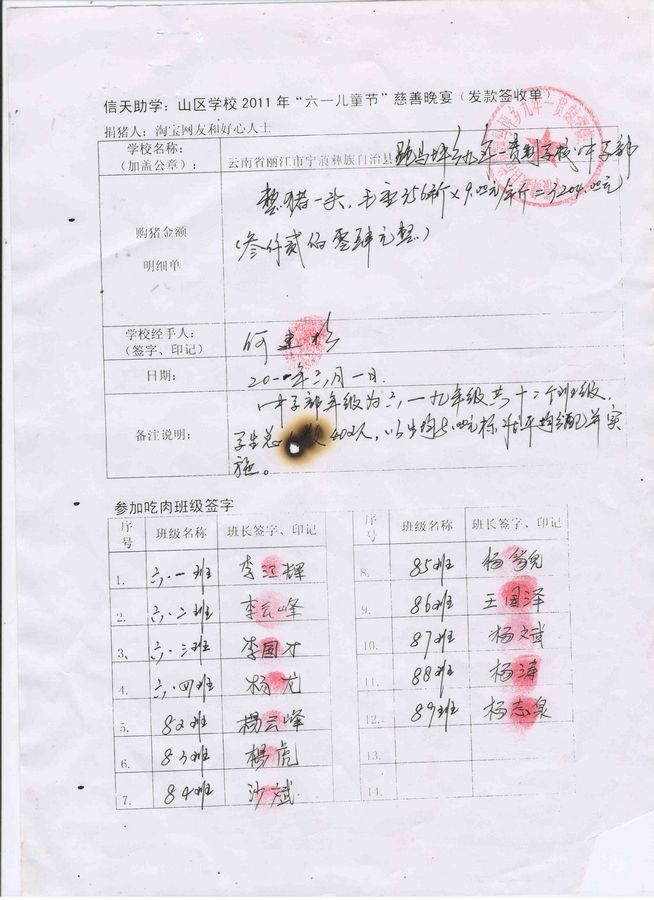 信天助学：山区学校2011年“六一儿童节”慈善晚宴（发款签收单）
捐猪人：淘宝网友和好心人士
学校名称：
（加盖公章）：
云南省丽江市宁蒗彝族自治县跑马坪乡九年一贯制学校中学部
购猪金额
明细单
整猪一头，毛重356斤×9.00元/斤=3204.00元
（叁仟贰佰零肆元整）
学校经手人：
（签字、印记）
何
日期：
二0一一年六月一日
备注说明：
中学部年级为六一九年级共十二个班级。
学生总 数402人，以
施。
参加吃肉班级签字
序号 班级名称 班长签字、印记
1. 六.一班 李江辉
2. 六.二班 李云峰
3、 六.三班 李国才
4. 六.四班 杨龙
5. 82班 楊云峰
6. 83班 楊虎
7. 84班 沙斌
序号 班级名称 班长签字、印记
8. 85班 杨
9. 86班 王国泽
10. 87班 杨文斌
11. 88班 杨涛
12. 89班 杨志泉
13.
14.